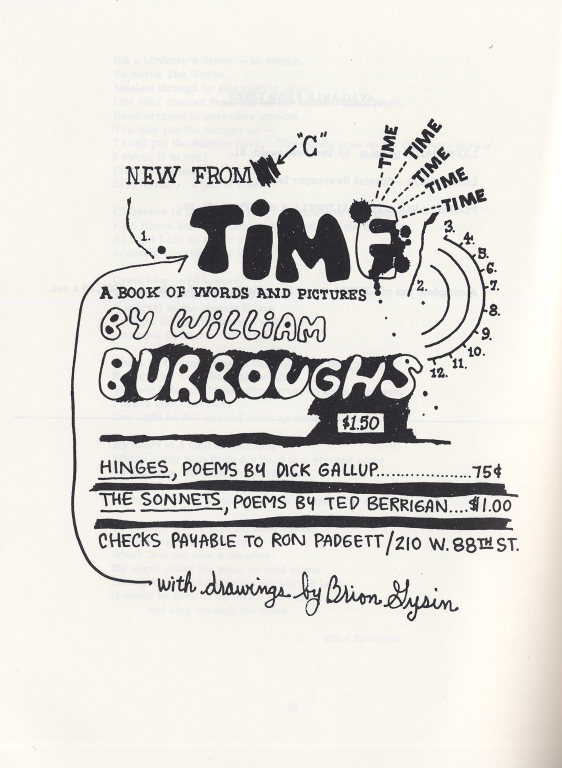 "C"
NEW FROM
TIME
TIME
TIME
TIME
TIME
TIME
1.
2.
3.
4.
5.
6.
7.
8.
9.
10.
11.
12.
A BOOK OF WORDS AND PICTURES
BY WILLIAM
BURROUGHS
$1.50
HINGES, POEMS BY DICK GALLUP......................75¢
THE SONNETS, POEMS BY TED BERRIGAN....$1.00
CHECKS PAYABLE TO RON PADGETT/210 W. 88TH ST.
with drawings by Brion Gysin